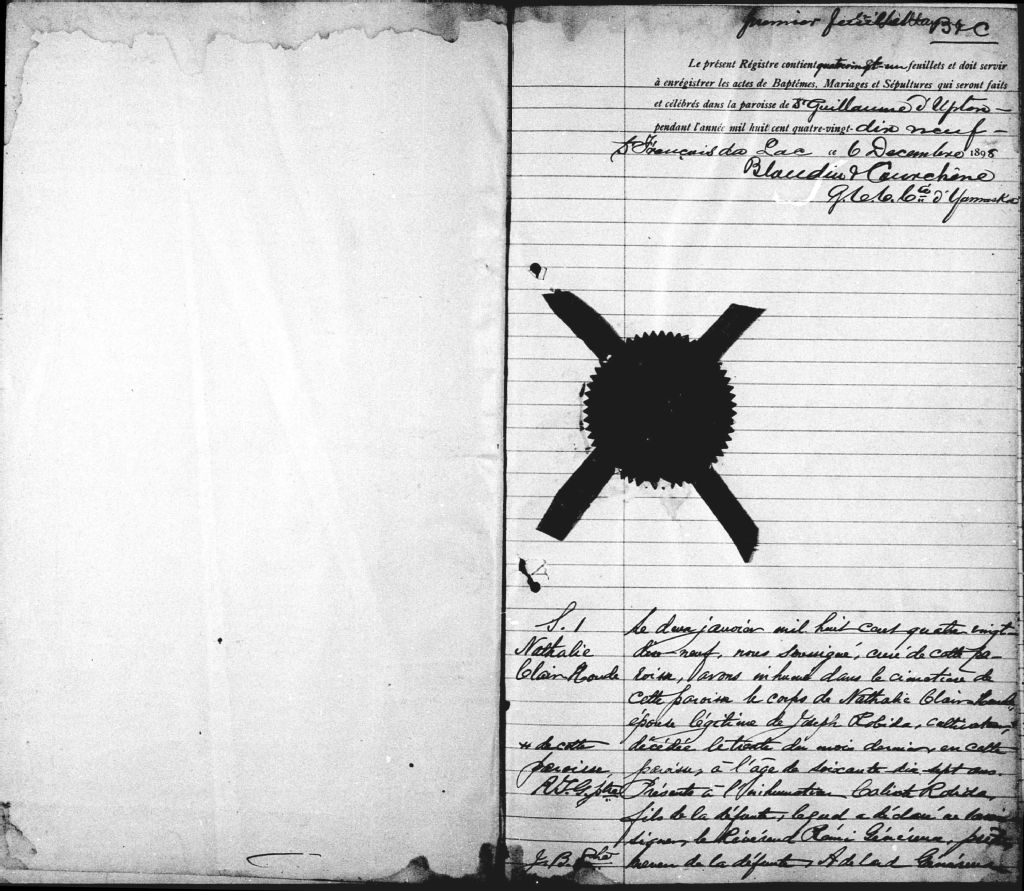 premier feuillet B & C
Le présent Régistre contient quatrevingt-un feuillets et doit servir
à enrégistrer les actes de Baptêmes, Mariages et Sépultures qui seront faits
et célébrés dans la paroisse de St Guillaume d'Upton —
pendant l'année mil huit cent quatre-vingt-dix neuf —
St François du Lac ce 6 Decembre 1898
Blondin & Courchêne
d'Yamaska
S. 1
Nathalie
Clair Houde
Le deux janvier mil huit cent quatre-vingt-
dix-neuf, nous soussigné, curé de cette pa-
roisse, avons inhumé dans le cimetière de
cette paroisse le corps de Nathalie Clair Houde,
épouse légitime de Joseph Robida, cultivateur,
décédée le trente du mois dernier, en cette
paroisse, à l'âge de soixante dix-sept ans.
Présents à l'inhumation Calixte Robida,
fils de la défunte, lequel a déclaré ne savoir
signer, le Révérend Rémi Généreux, prêtre
neveu de la défunte, Adelard Généreux
# de cette
paroisse,
J. B.